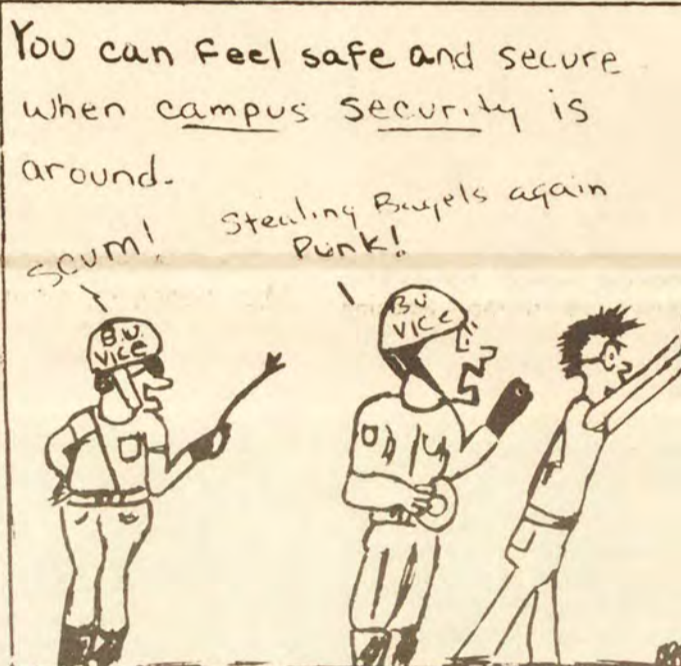 You can feel safe and secure
when campus security is
around.
Scum!
Stealing Bagels again
Punk!
B.U.
VICE
B.U.
VICE